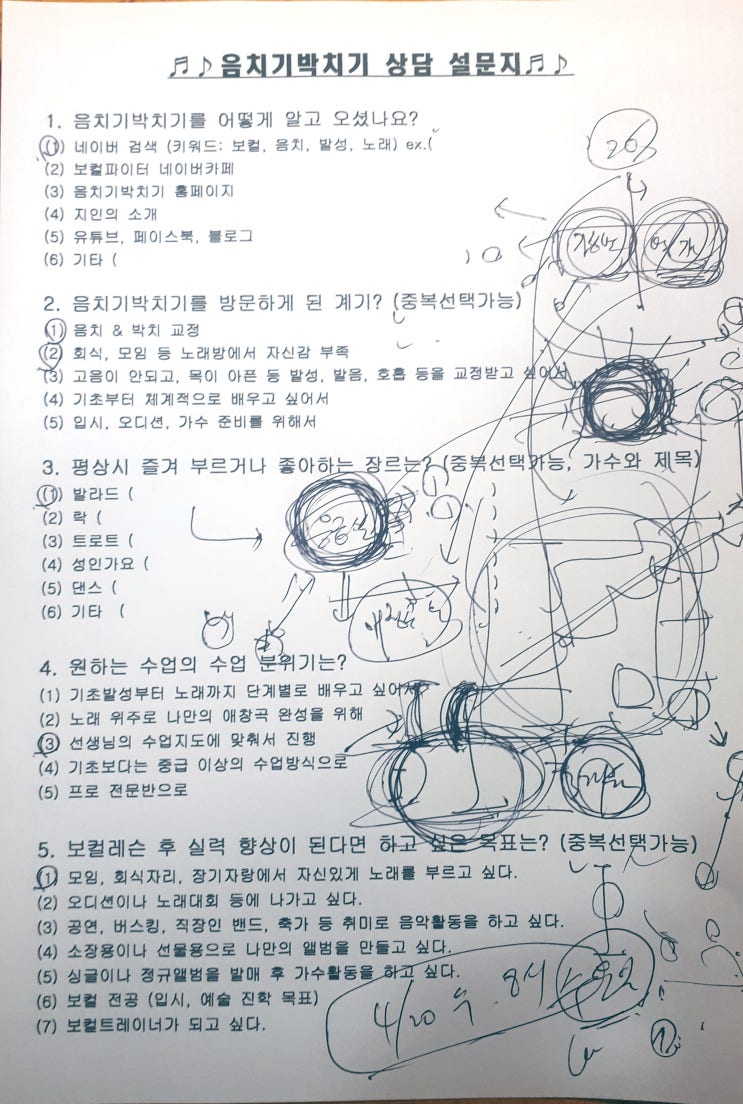 ♬♪음치기박치기 상담 설문지♬♪
1. 음치기박치기를 어떻게 알고 오셨나요?
(1) 네이버 검색 (키워드: 보컬, 음치, 발성, 노래) ex.(
(2) 보컬파이터 네이버카페
(3) 음치기박치기 홈페이지
(4) 지인의 소개
(5) 유튜브, 페이스북, 블로그
(6) 기타 ( )
2. 음치기박치기를 방문하게 된 계기? (중복선택가능)
(1) 음치 & 박치 교정
(2) 회식, 모임 등 노래방에서 자신감 부족
(3) 고음이 안되고, 목이 아픈 등 발성, 발음, 호흡 등을 교정받고 싶어서
(4) 기초부터 체계적으로 배우고 싶어서
(5) 입시, 오디션, 가수 준비를 위해서
3. 평상시 즐겨 부르거나 좋아하는 장르는? (중복선택가능, 가수와 제목)
(1) 발라드 ( )
(2) 락 ( )
(3) 트로트 ( )
(4) 성인가요 ( )
(5) 댄스 ( )
(6) 기타 ( )
4. 원하는 수업의 수업 분위기는?
(1) 기초발성부터 노래까지 단계별로 배우고 싶어서
(2) 노래 위주로 나만의 애창곡 완성을 위해
(3) 선생님의 수업지도에 맞춰서 진행
(4) 기초보다는 중급 이상의 수업방식으로
(5) 프로 전문반으로
5. 보컬레슨 후 실력 향상이 된다면 하고 싶은 목표는? (중복선택가능)
(1) 모임, 회식자리, 장기자랑에서 자신있게 노래를 부르고 싶다.
(2) 오디션이나 노래대회 등에 나가고 싶다.
(3) 공연, 버스킹, 직장인 밴드, 축가 등 취미로 음악활동을 하고 싶다.
(4) 소장용이나 선물용으로 나만의 앨범을 만들고 싶다.
(5) 싱글이나 정규앨범을 발매 후 가수활동을 하고 싶다.
(6) 보컬 전공 (입시, 예술 진학 목표)
(7) 보컬트레이너가 되고 싶다.
4/20 수. 8시 수요일